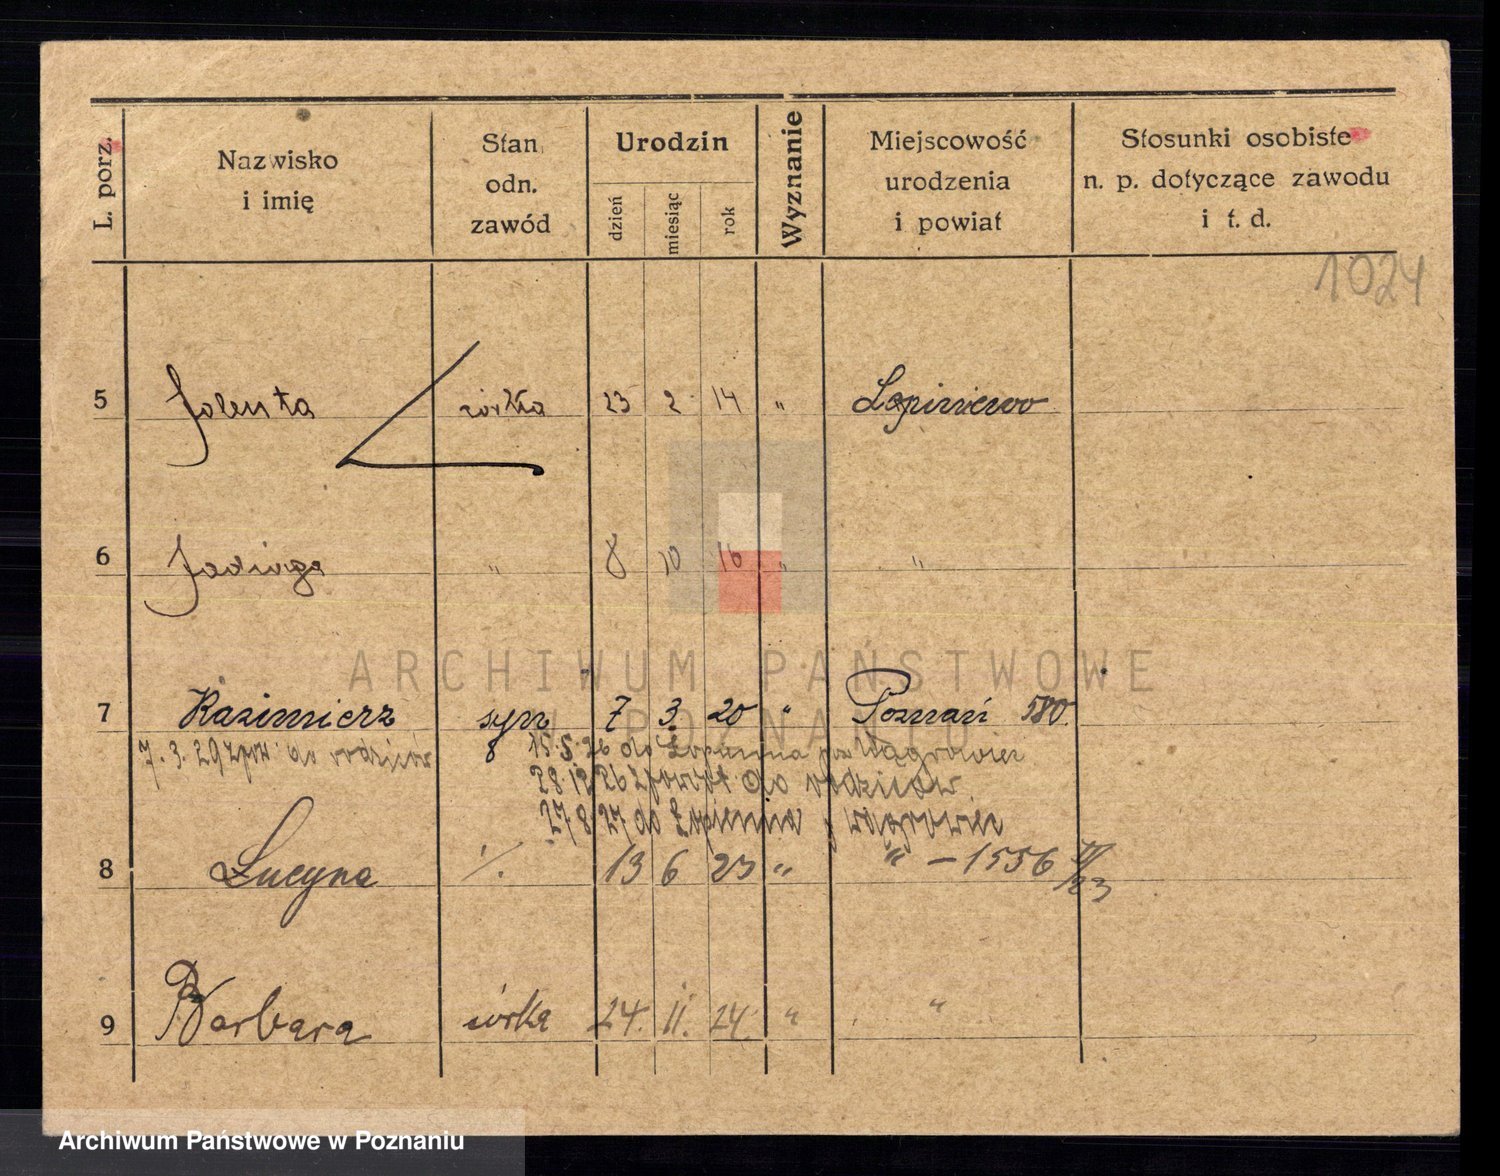 L. porz.
Nazwisko
i imię
Stan
odn.
zawód
Urodzin
dzień
miesiąc
rok
Wyznanie
Miejscowość
urodzenia
i powiat
Stosunki osobiste
n. p. dotyczące zawodu
i t. d.
1024
5 Jolenta córka 23 2 14 " Łopiniewo
6 Jadwiga " 8 10 16 " "
ARCHIWUM PAŃSTWOWE
W POZNANIU
7 Kazimierz syn 7 3. 20 " Poznań 580.
7. 3. 29 z pow. do rodziców
8 15.5.26 do Łopienna pow Wągrowiec
28 12 26 z powrot do rodziców
27/8 27 do Łopienna p wągrowiec
8 Lucyna ./. 13 6 23 " " – 1556 IV/23
9 Barbara córka 24. 11. 24. " "
Archiwum Państwowe w Poznaniu